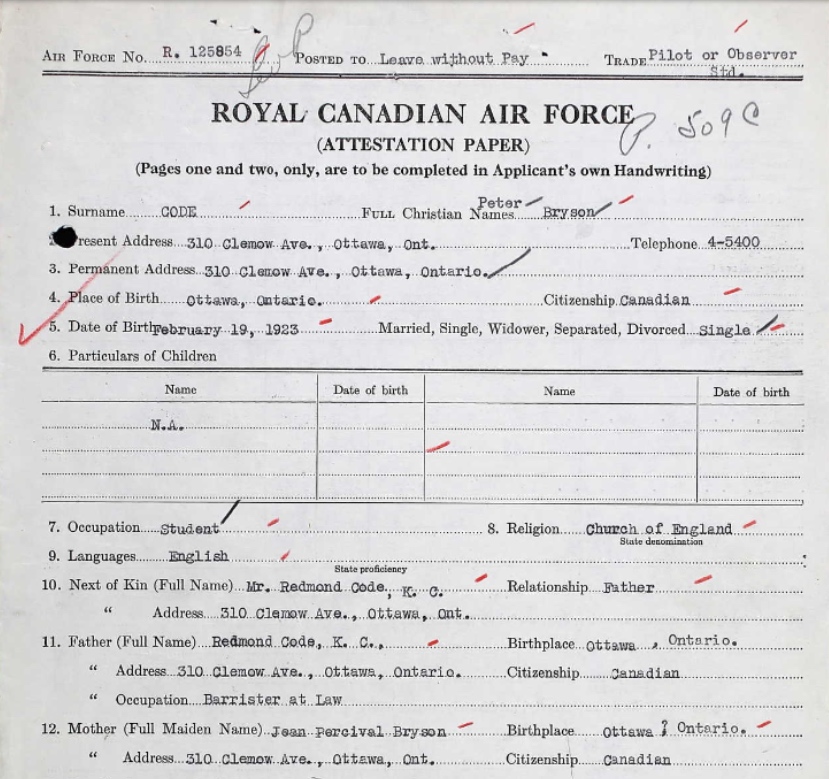 AIR FORCE No. R. 125854 POSTED TO Leave without Pay TRADE Pilot or Observer
Std.
ROYAL CANADIAN AIR FORCE
(ATTESTATION PAPER) P. 509C
(Pages one and two, only, are to be completed in Applicant's own Handwriting)
1. Surname CODE FULL Christian Names Peter Bryson
resent Address 310 Clemow Ave., Ottawa, Ont. Telephone 4-5400
3. Permanent Address 310 Clemow Ave., Ottawa, Ontario.
4. Place of Birth Ottawa, Ontario. Citizenship Canadian
5. Date of Birth February 19, 1923 Married, Single, Widower, Separated, Divorced Single
6. Particulars of Children
Name Date of birth Name Date of birth
N.A.
7. Occupation Student 8. Religion Church of England
State denomination
9. Languages English
State proficiency
10. Next of Kin (Full Name) Mr. Redmond Code, K. C. Relationship Father
" Address 310 Clemow Ave., Ottawa, Ont.
11. Father (Full Name) Redmond Code, K. C., Birthplace Ottawa, Ontario.
" Address 310 Clemow Ave., Ottawa, Ontario. Citizenship Canadian
" Occupation Barrister at Law
12. Mother (Full Maiden Name) Jean Percival Bryson Birthplace Ottawa, Ontario.
" Address 310 Clemow Ave., Ottawa, Ont. Citizenship Canadian